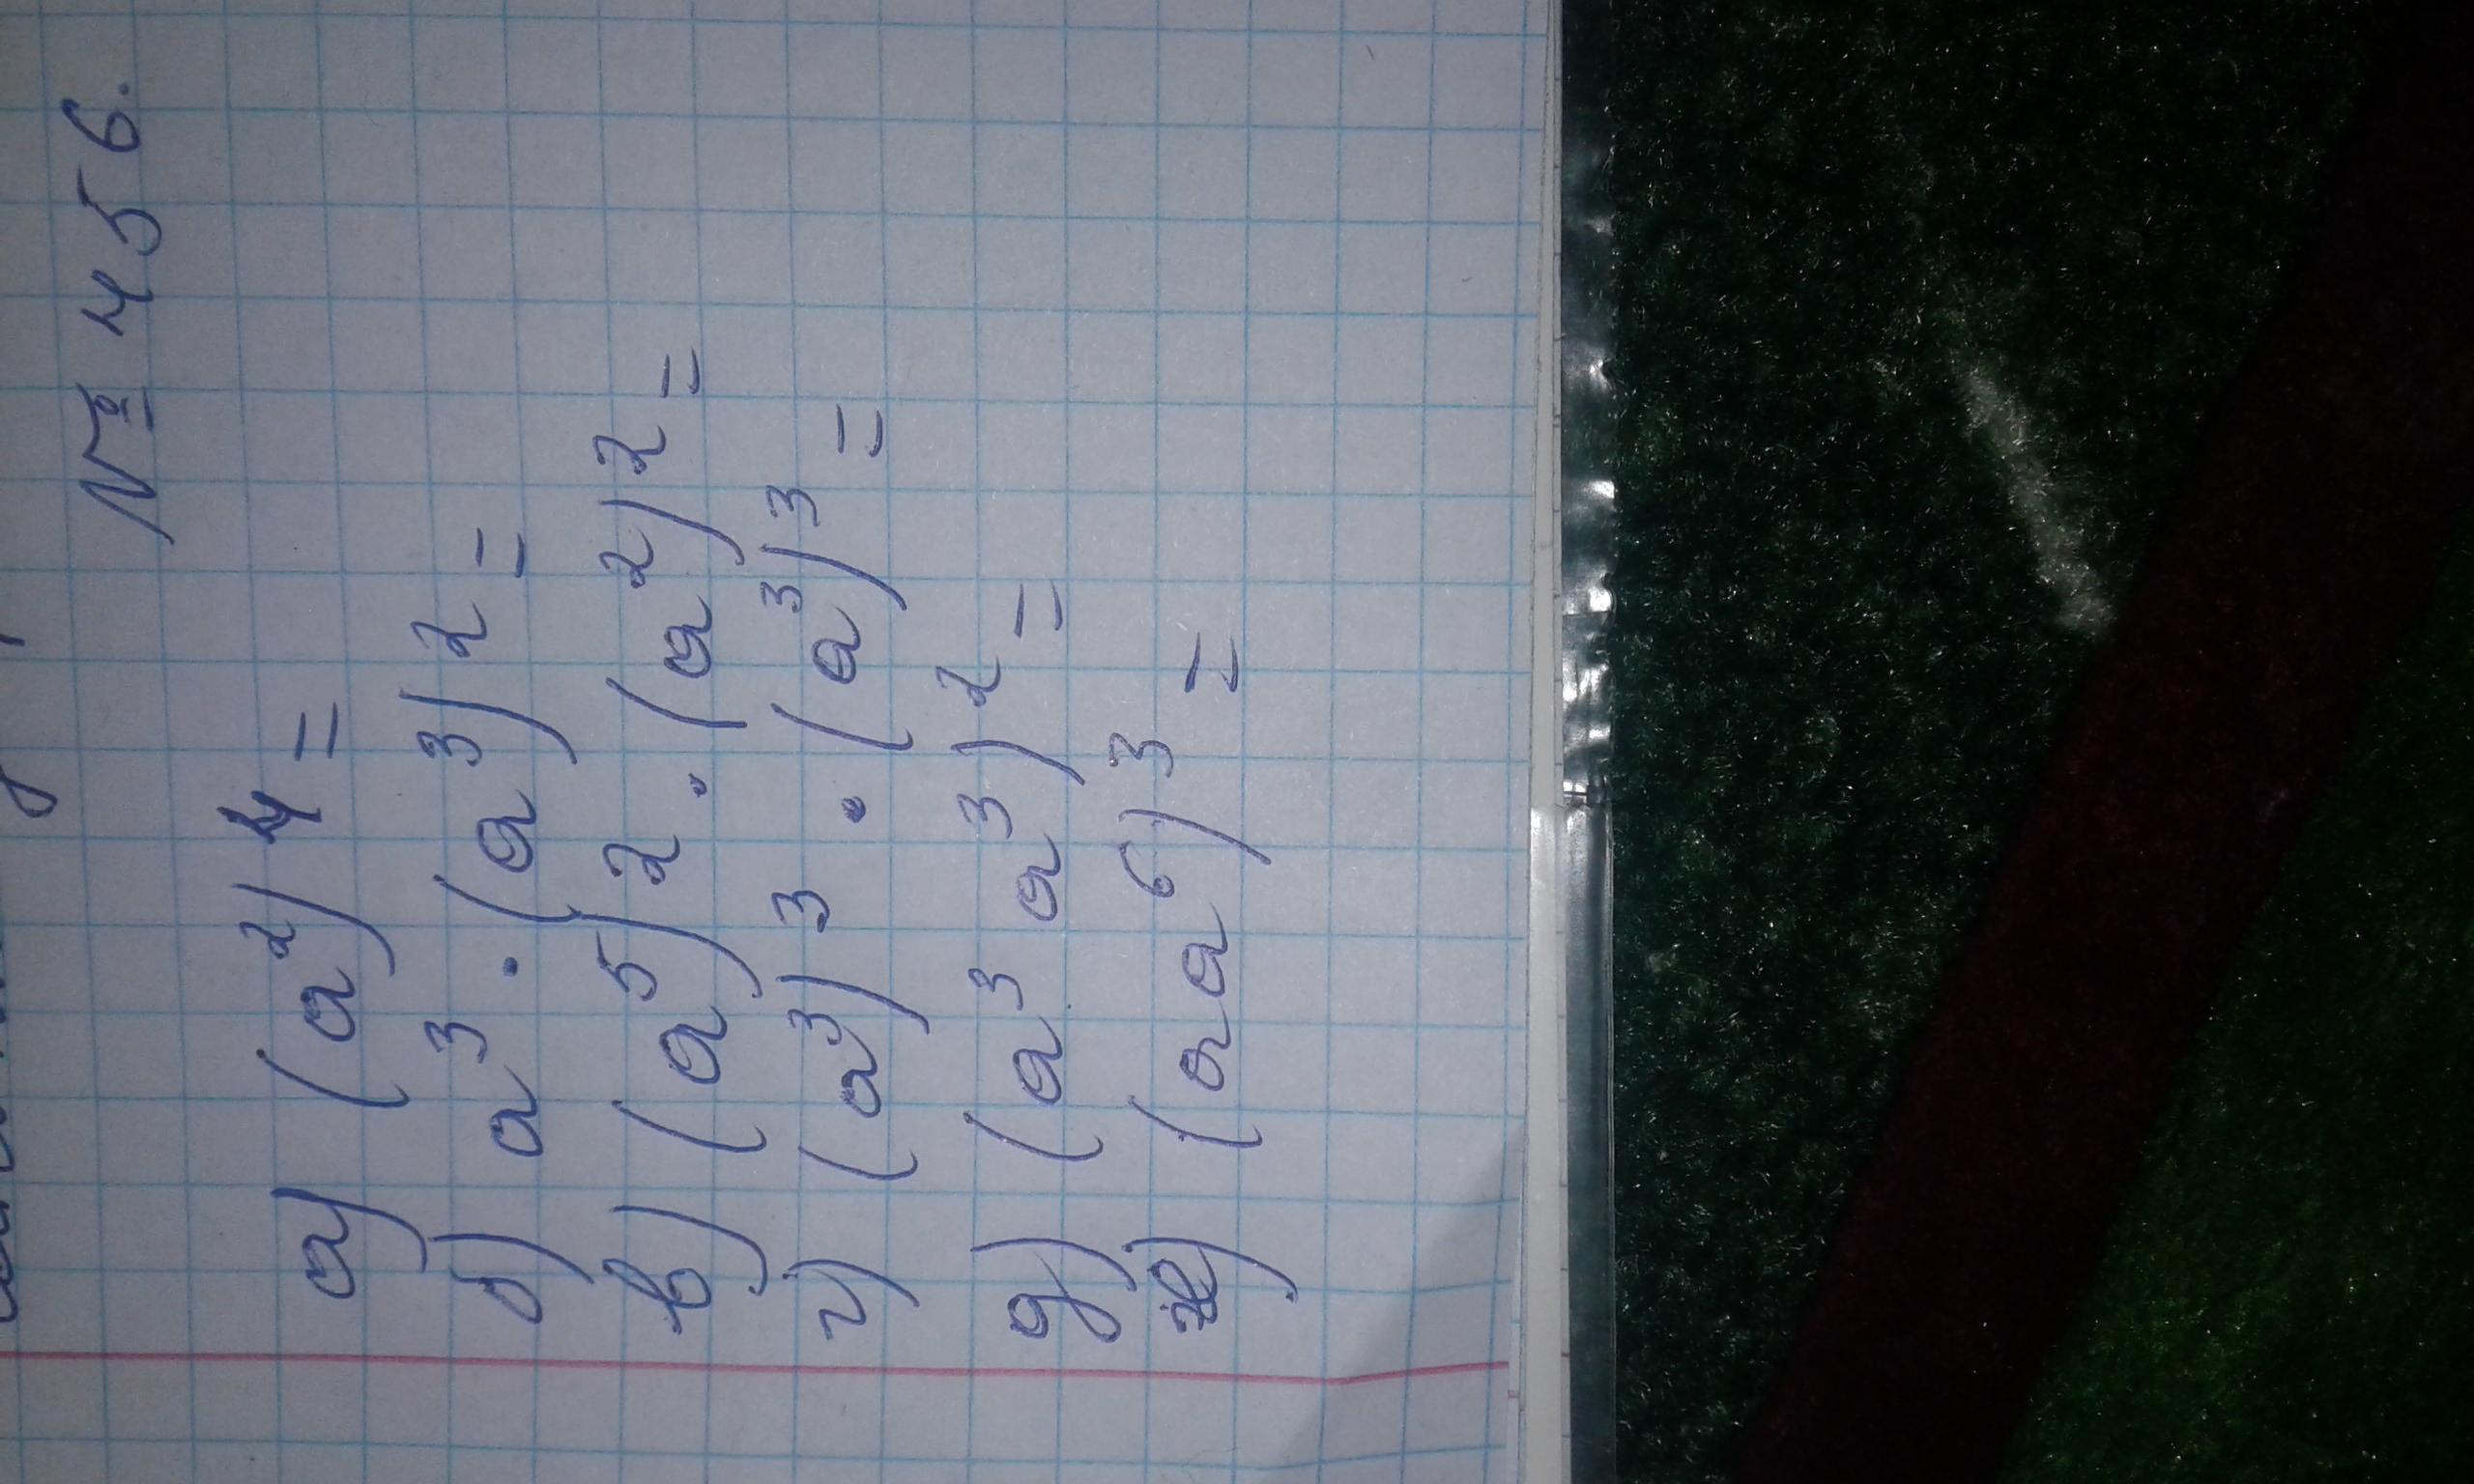 № 456.
а) (a²)⁴ =
б) a³ · (a³)² =
в) (a⁵)² · (a²)² =
г) (a³)³ · (a³)³ =
д) (a³ a³)² =
ж) (a a⁶)³ =